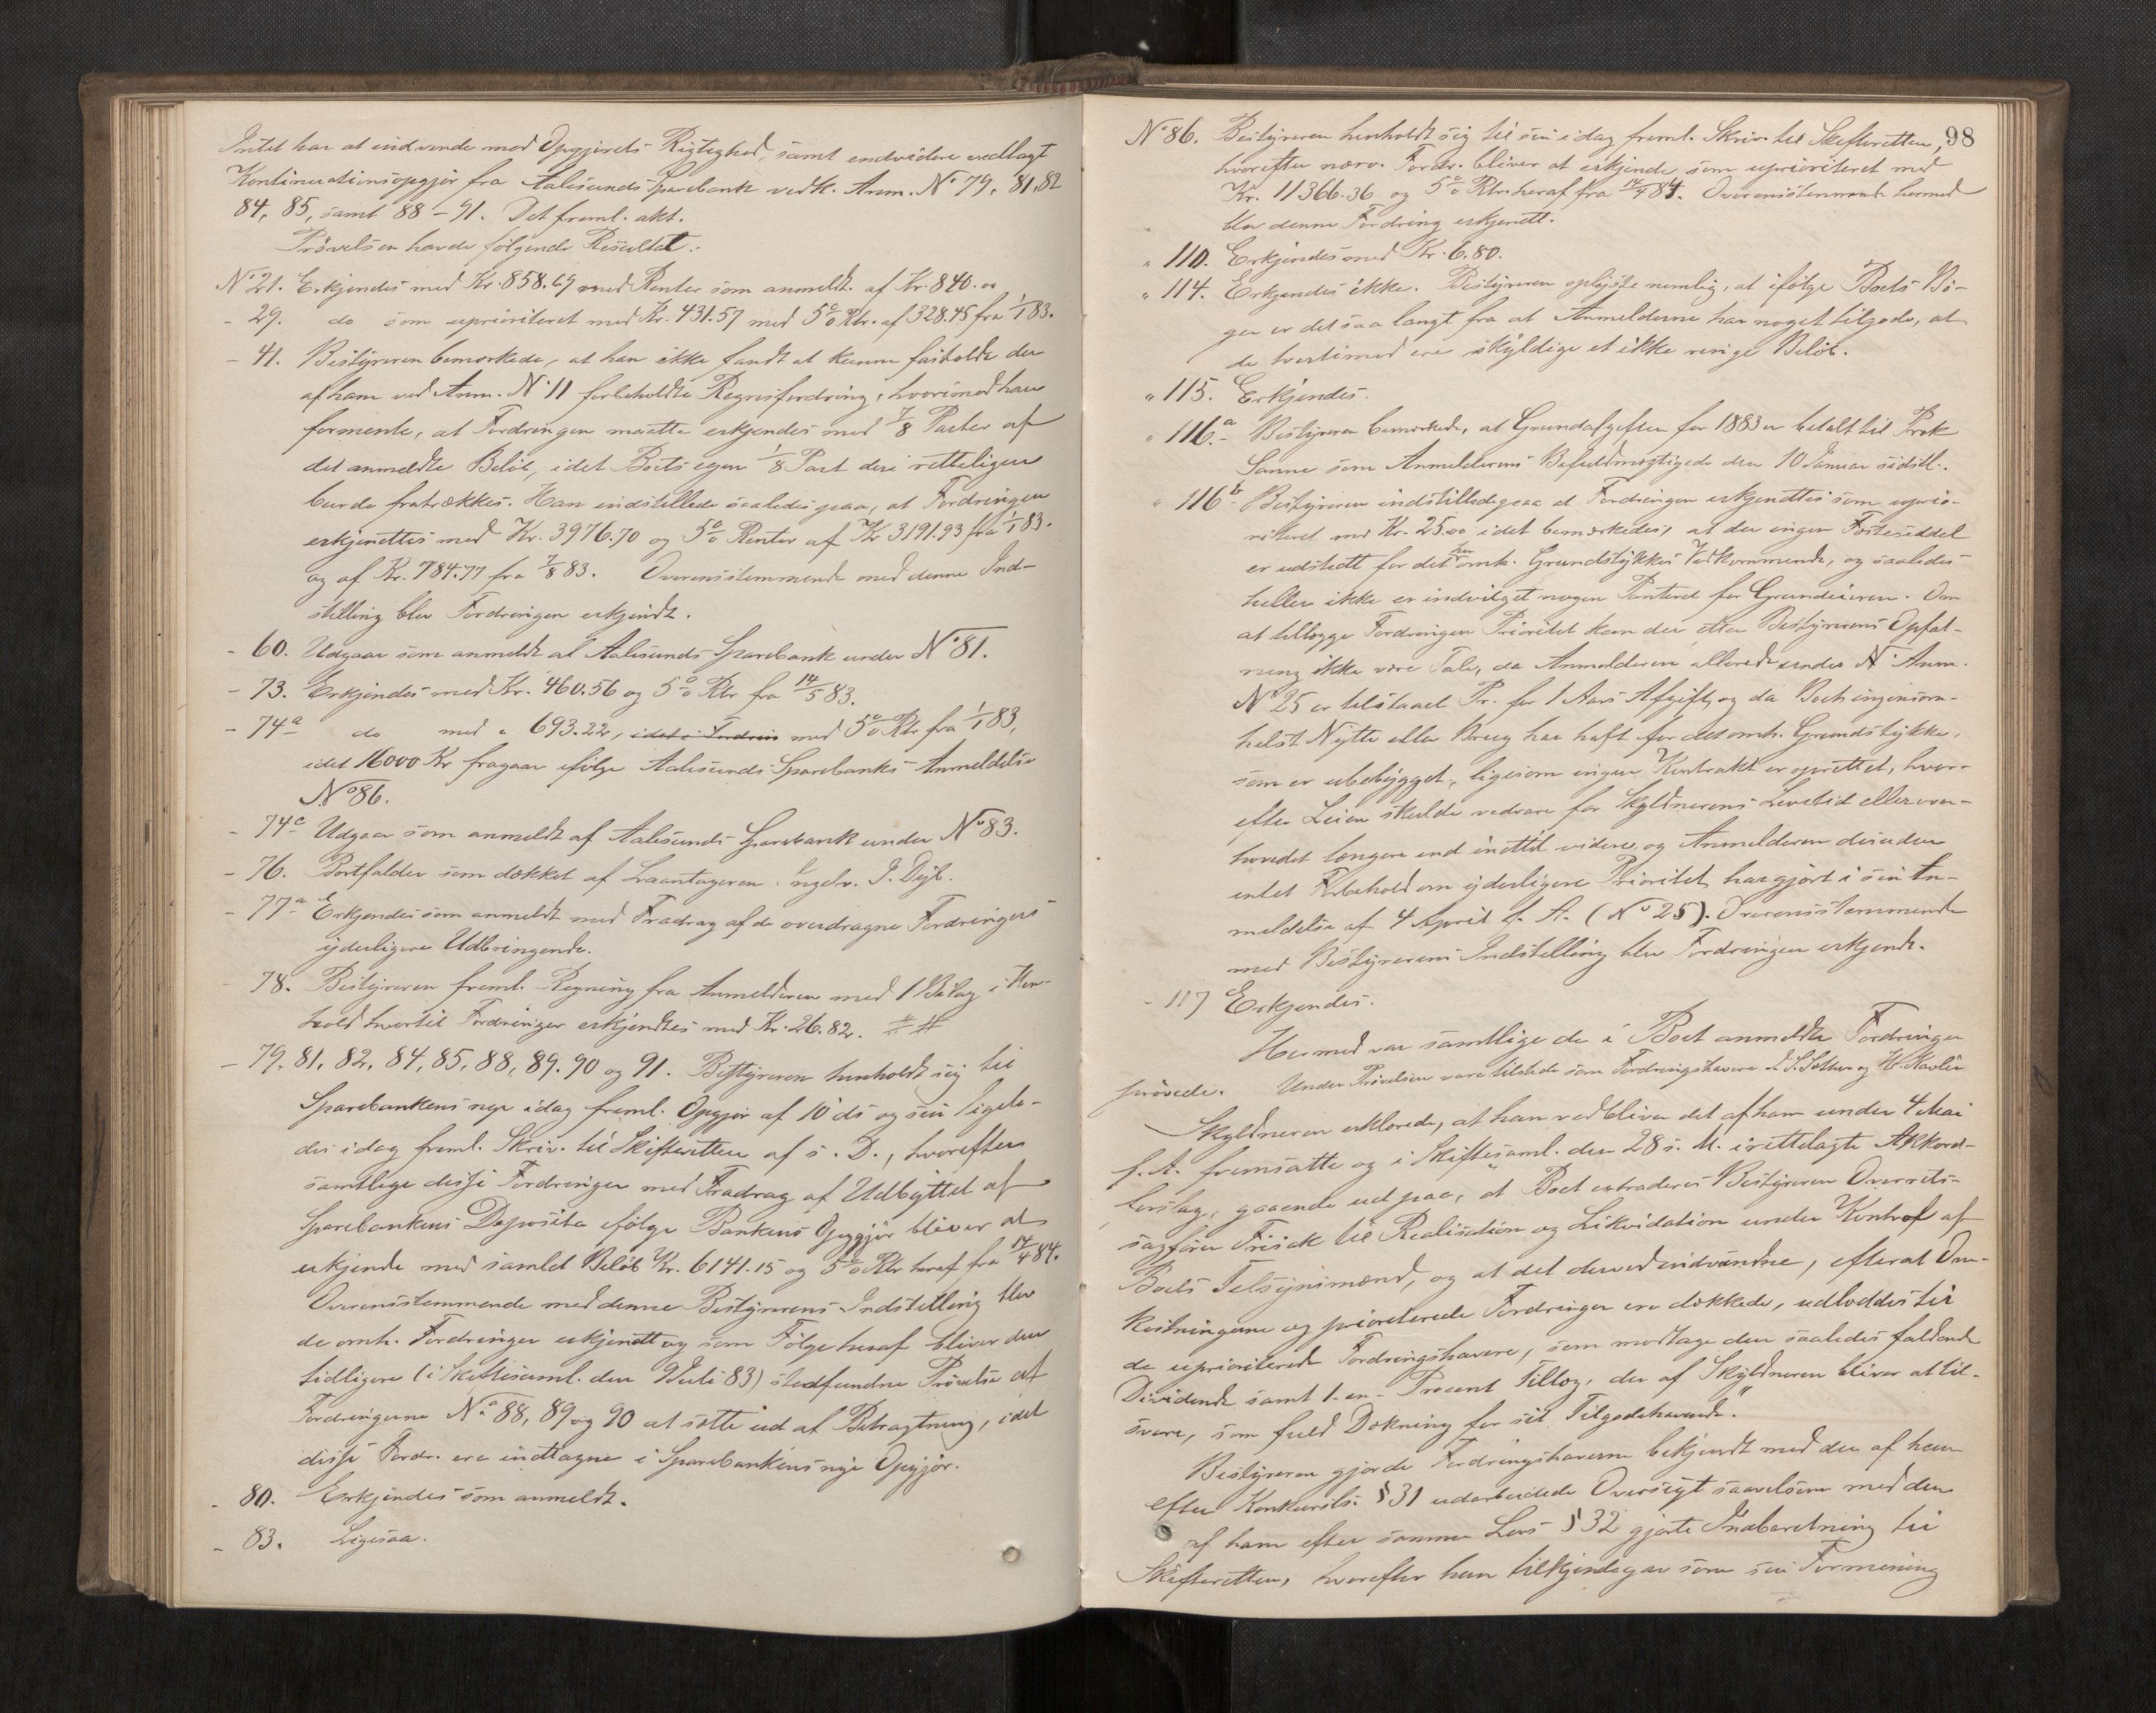 Intet har at indvende mod Opgjørets Rigtighed, samt endvidere vedlagt
Kontinuationsopgjør fra Aalesunds Sparebank vedk. Anm. No 79, 81, 82
84, 85, samt 88 – 91. Det freml. akt.
Prøvelsen havde følgende Resultat:
No 21. Erkjendes med Kr. 858.69 med Renter som anmeldt af Kr. 840.00
- 29. do som uprioriteret med Kr. 431.57 med 5% Rtr. af 328.45 fra 1/1 83.
- 41. Bestyreren bemærkede, at han ikke fandt at kunne fastholde den
af ham ved Anm. No 11 forbeholdte Regresfordring, hvorimod han
formente, at Fordringen maatte erkjendes med 7/8 Parter af
det anmeldte Beløb, idet Boets egen 1/8 Part deri retteligen
burde fratrækkes. Han indstillede saaledes paa, at Fordringen
erkjendtes med Kr. 3976.70 og 5% Renter af Kr 3191.93 fra 1/1 83.
og af Kr. 784.77 fra 7/8 83. Overensstemmende med denne Ind-
stilling blev Fordringen erkjendt.
- 60. Udgaar som anmeldt af Aalesunds Sparebank under No 81.
- 73. Erkjendes med Kr. 460.56 og 5% Rtr fra 14/5 83.
- 74a do med " 693.22, idet i Fordrin med 5% Rtr fra 1/1 83,
idet 16000 Kr fragaar ifølge Aalesunds Sparebanks Anmeldelse
No 86.
- 74c Udgaar som anmeldt af Aalesunds Sparebank under No 83.
- 76. Bortfalder som dækket af Laantageren J. Dyb.
- 77a Erkjendes som anmeldt med Fradrag af de overdragne Fordringers
yderligere Udbringende.
- 78. Bestyreren freml. Regning fra Anmelderen med 1 Bilag i Hen-
hold hvortil Fordringen erkjendtes med Kr. 26.82. # #
- 79, 81, 82, 84, 85, 88, 89, 90 og 91. Bestyreren henholdt sig til
Sparebankens nye idag freml. Opgjør af 10 ds og sin ligele-
des idag freml. Skriv. til Skifteretten af s. D., hvorefter
samtlige disse Fordringer med Fradrag af Udbyttet af
Sparebankens Deposita ifølge Bankens Opgjør bliver at
erkjende med samlet Beløb Kr. 6141.15 og 5% Rtr heraf fra 14/4 84.
Overensstemmende med denne Bestyrerens Indstilling blev
de omh. Fordringer erkjendt og som Følge heraf bliver den
tidligere (i Skiftesaml. den 9 Juli 83) stedfundne Prøvelse af
Fordringerne No 88, 89 og 90 at sætte ud af Betragtning, idet
disse Fordr. ere indtagne i Sparebankens nye Opgjør.
- 80. Erkjendes som anmeldt.
- 83. Ligesaa.
98
No 86. Bestyreren henholdt sig til sin idag freml. Skriv. til Skifteretten,
hvorefter nærv. Fordr. bliver at erkjende som uprioriteret med
Kr. 11366.36 og 5% Rtr. heraf fra 14/4 84. Overensstemmende hermed
blev denne Fordring erkjendt.
" 110. Erkjendes med Kr. 6.80.
" 114. Erkjendes ikke. Bestyreren oplyste nemlig, at ifølge Boets Bø-
ger er det saa langt fra at Anmelderne har noget tilgode, at
de tvertimod ere skyldige et ikke ringe Beløb.
" 115. Erkjendes.
" 116.a Bestyreren bemærkede, at Grundafgiften for 1883 er betalt til Prok
Sanne som Anmelderens Befuldmægtigede den 10 Januar sidstl.
" 116b Bestyreren indstillede paa at Fordringen erkjendtes som uprio-
riteret med Kr. 25.00 idet bemærkedes, at der ingen Fæsteseddel
er udstedt for det her omh. Grundstykkes Vedkommende, og saaledes
heller ikke er indvilget nogen Panteret for Grundeieren. Om
at tillægge Fordringen Prioritet kan der efter Bestyrerens Opfat-
ning ikke være Tale, da Anmelderen allerede under N. Anm.
No 25 er tilstaaet Pr. for 1 Aars Afgift, og da Boet ingensom-
helst Nytte eller Brug har haft for det omh. Grundstykke,
som er ubebygget, ligesom ingen Kontrakt er oprettet, hvor-
efter Leien skulde vedvare for Skyldnerens Levetid eller over-
hovedet længere end indtil videre, og Anmelderen desuden
intet Forbehold om yderligere Prioritet har gjort i sin An-
meldelse af 4 April f. A. (No 25). Overensstemmende
med Bestyrerens Indstilling blev Fordringen erkjendt.
- 117 Erkjendes.
Hermed var samtlige de i Boet anmeldte Fordringer
prøvede. Under Prøvelsen vare tilstede som Fordringshavere
Skyldneren erklærede, at han vedbliver det af ham under 4 Mai
f. A. fremsatte og i Skiftesaml. den 28 s. M. irettelagte Akkord-
forslag, gaaende ud paa, "at Boet extraderes Bestyreren Overrets-
sagfører Frisak til Realisation og Likvidation under Kontrol af
Boets Tilsynsmænd, og at det derved indvundne, efterat Om-
kostningerne og prioriterede Fordringer ere dækkede, udloddes til
de uprioriterede Fordringshavere, som modtage den saaledes faldende
Dividende samt 1 - en - Procent Tillæg, der af Skyldneren bliver at til-
svare, som fuld Dækning for sit Tilgodehavende."
Bestyreren gjorde Fordringshaverne bekjendt med den af ham
efter Konkursls. § 31 udarbeidede Oversigt saavelsom med den
af ham efter samme Lovs § 32 gjorte Indberetning til
Skifteretten, hvorefter han tilkjendegav som sin Formening